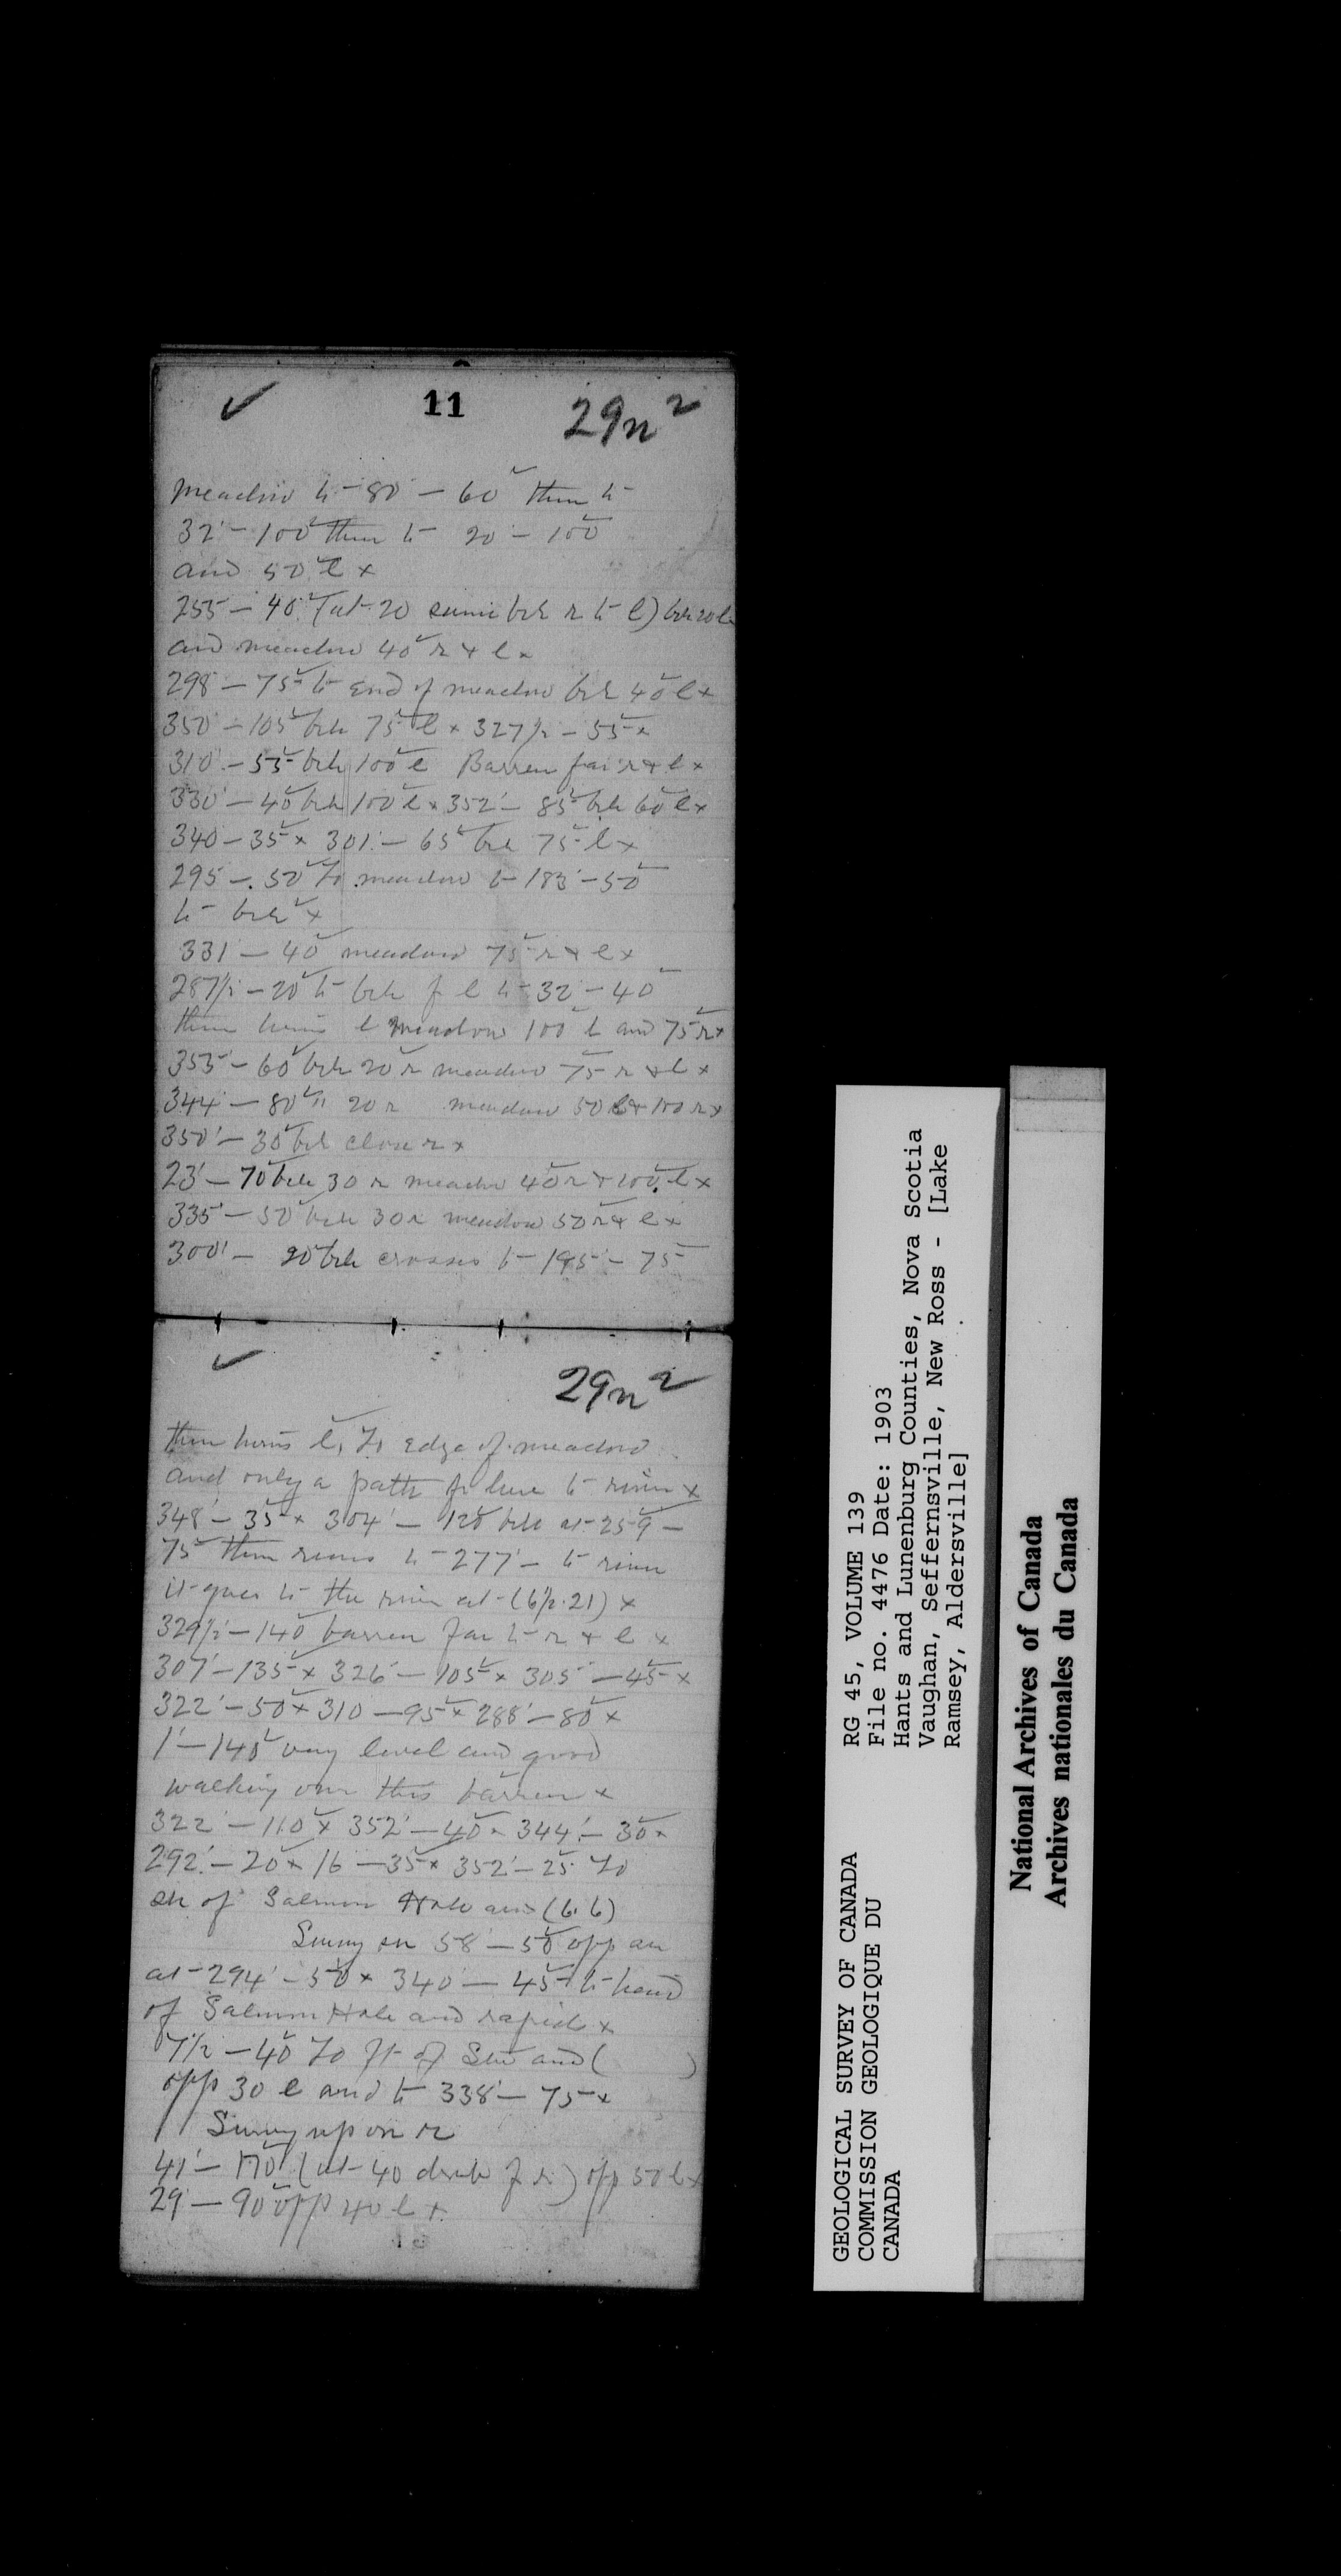 11
29n²
meadow to 80' — 60 then to
32' — 100 then to 20' — 100
and 50 l x
255 — 40 (at 20 same brk r to l) brk 20 l
and meadow 40 r + l x
298 — 75 to end of meadow brk 40 l x
350' — 105 brk 75 l x 327½ — 55 x
310' — 55 brk 100 l Barren far r + l x
330' — 40 brk 100 l x 352' — 85 brk 60 l x
340 — 35 x 301' — 65 brk 75 l x
295 — 50 To meadow to 183' — 50
to brk x
331' — 40 meadow 75 r + l x
287½ — 20 to brk f l to 32' — 40
then turns l meadow 100 l and 75 r x
353' — 60 brk 20 r meadow 75 r + l x
344' — 80 " 20 r meadow 50 l + 100 r x
350' — 30 brk close r x
23' — 70 brk 30 r meadow 40 r + 100 l x
335' — 50 brk 30 r meadow 50 r + l x
300' — 20 brk crosses to 195' — 75
29n²
then turns l, To edge of meadow
and only a path fr here to river x
348' — 35 x 304' — 120 brk at 259 —
75 then runs to 277' — to river
it goes to the river at (6 p. 21) x
329½ — 140 barren far to r + l x
307' — 135 x 326' — 105 x 305' — 45 x
322' — 50 x 310 — 95 x 288' — 80 x
1' — 140 very level and good
walking over this barren x
322' — 110 x 352' — 40 x 344' — 30 x
292' — 20 x 16 — 35 x 352' — 25 To
sh of Salmon Hole and (6.6)
58' — 50 opp an
at 294' — 50 x 340' — 45 to head
of Salmon Hole and rapid x
7½ — 40 To ft of and ( )
opp 30 l and to 338' — 75 x
Survey up on r
41' — 170 (at 40 f r) opp 50 l x
29' — 90 opp 40 l x
GEOLOGICAL SURVEY OF CANADA
COMMISSION GEOLOGIQUE DU
CANADA
RG 45, VOLUME 139
File no. 4476 Date: 1903
Hants and Lunenburg Counties, Nova Scotia
Vaughan, Seffernsville, New Ross - [Lake
Ramsey, Aldersville]
National Archives of Canada
Archives nationales du Canada